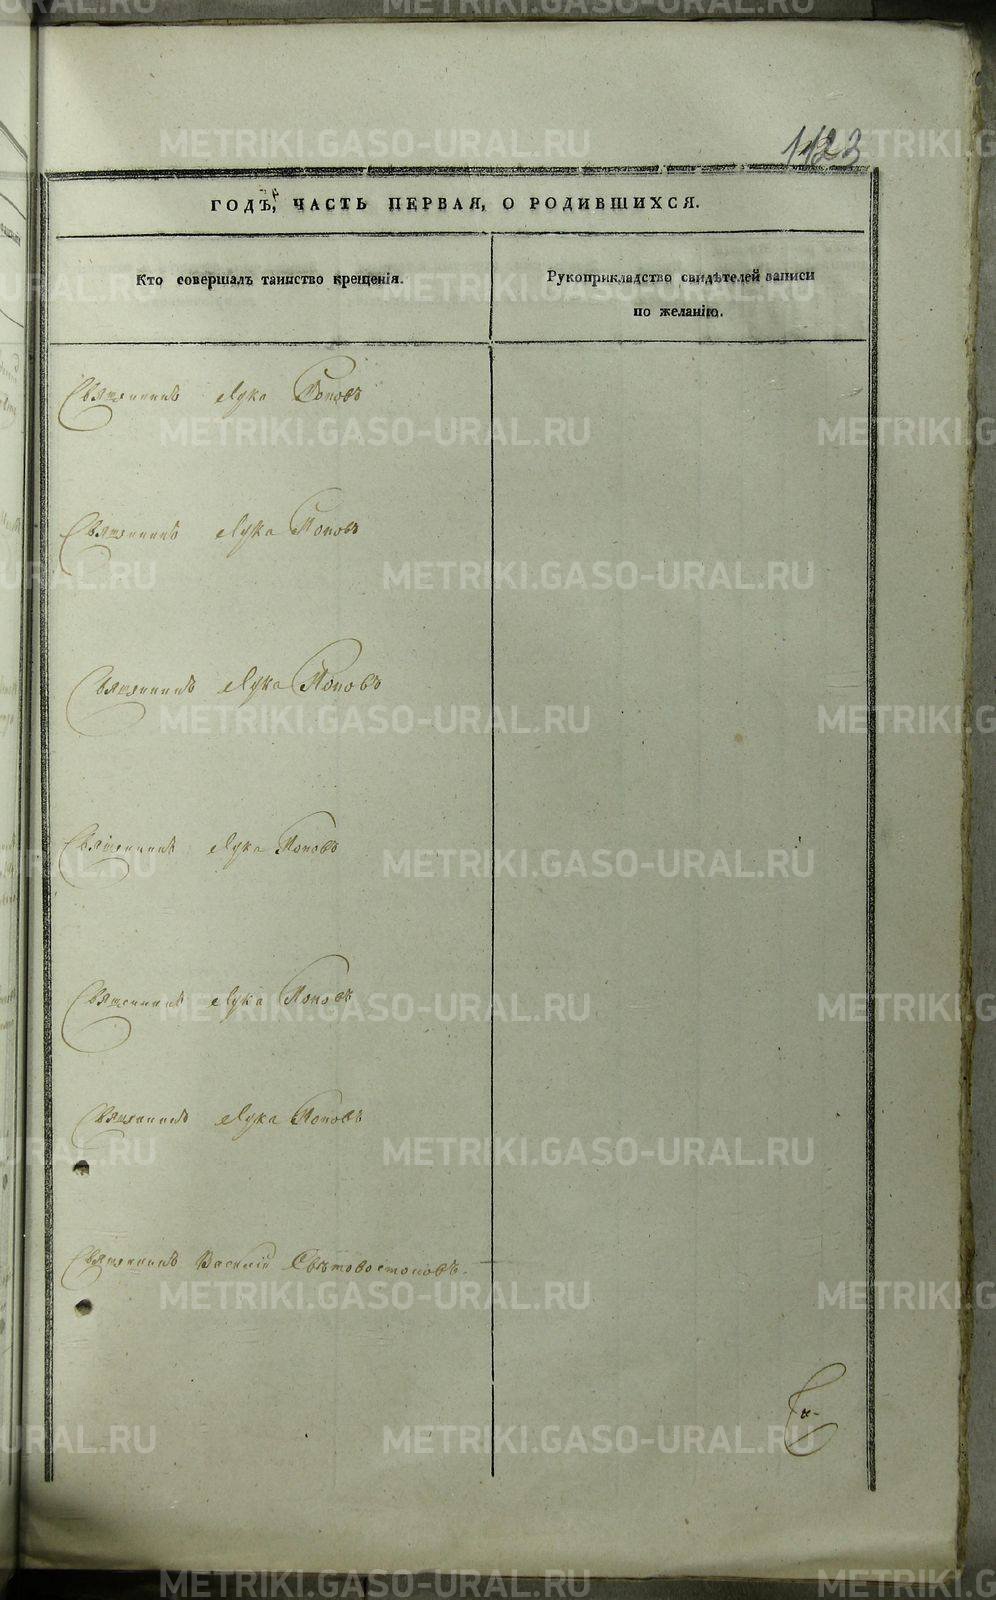 1123
ГОДЪ, ЧАСТЬ ПЕРВАЯ, О РОДИВШИХСЯ.
Кто совершалъ таинство крещенія.
Рукоприкладство свидѣтелей записи
по желанію.
Священникъ Лука Поповъ
Священникъ Лука Поповъ
Священникъ Лука Поповъ
Священникъ Лука Поповъ
Священникъ Лука Поповъ
Священникъ Лука Поповъ
Священникъ Василій Свѣтовостоковъ.
METRIKI.GASO-URAL.RU